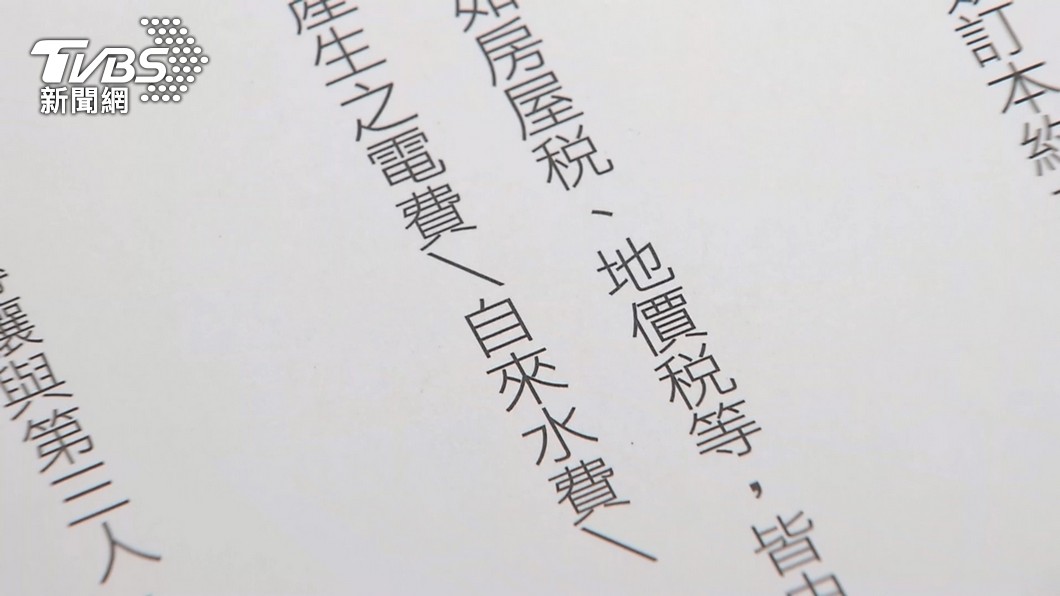 TVBS
新聞網
訂本約
如房屋税、地價税等，皆由
產生之電費\自來水費\
讓與第三人